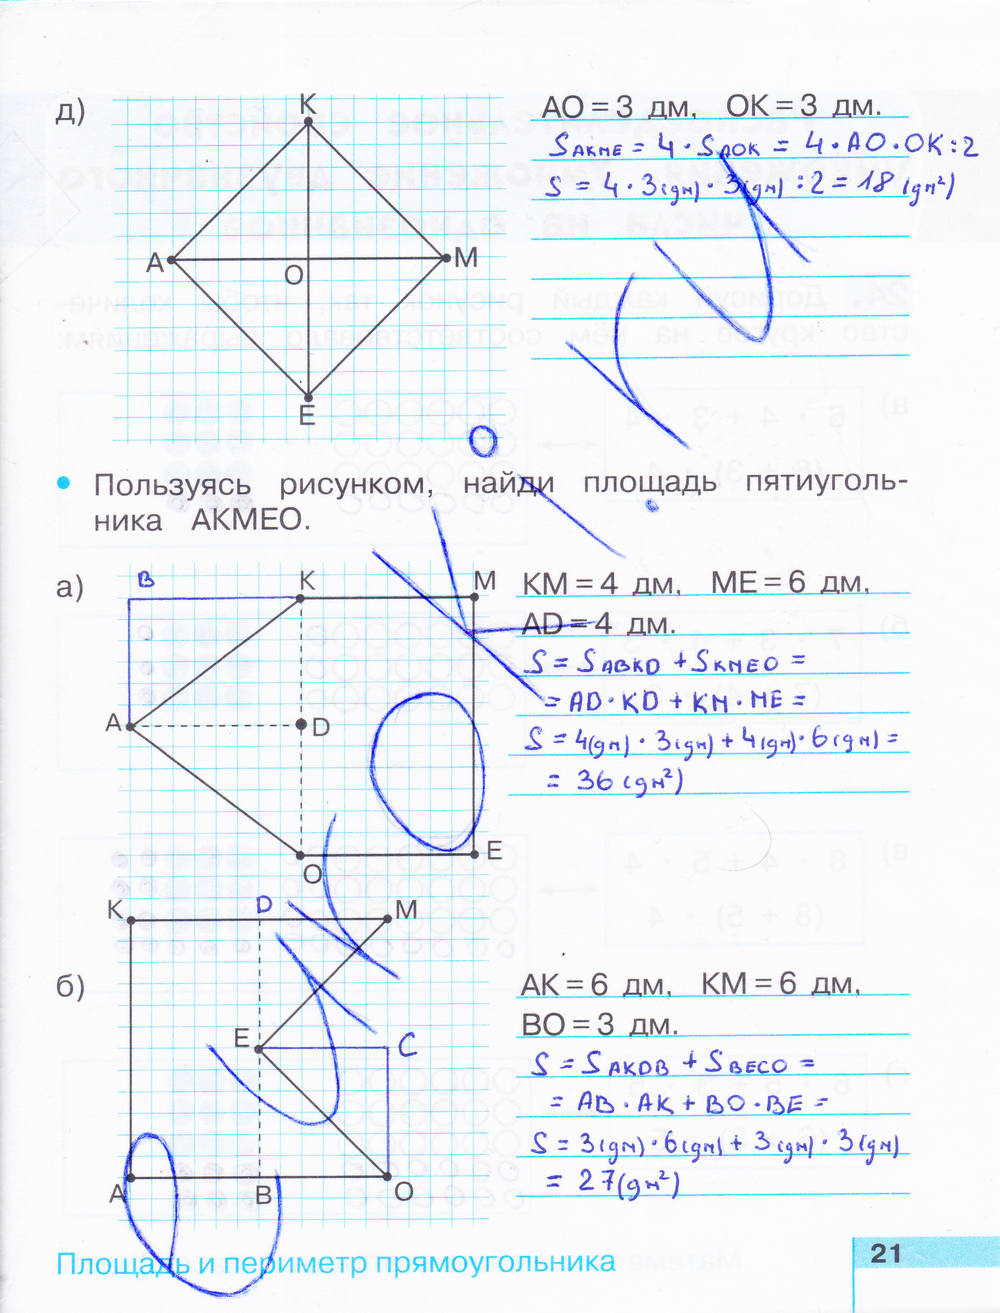 д)
К
А
О
М
Е
АО = 3 дм, ОК = 3 дм.
SАКМЕ = 4 · SАОК = 4 · АО · ОК : 2
S = 4 · 3(дм) · 3(дм) : 2 = 18 (дм²)
• Пользуясь рисунком, найди площадь пятиуголь-
ника АКМЕО.
а)
В
К
М
А
D
О
Е
КМ = 4 дм, МЕ = 6 дм,
AD = 4 дм.
S = SABKD + SKMEO =
= AD · KD + KM · ME =
S = 4(дм) · 3(дм) + 4(дм) · 6(дм) =
= 36 (дм²)
б)
К
D
М
Е
С
А
В
О
АК = 6 дм, КМ = 6 дм,
ВО = 3 дм.
S = SAKDB + SBECO =
= AB · AK + BO · BE =
S = 3(дм) · 6(дм) + 3(дм) · 3(дм)
= 27(дм²)
Площадь и периметр прямоугольника
21